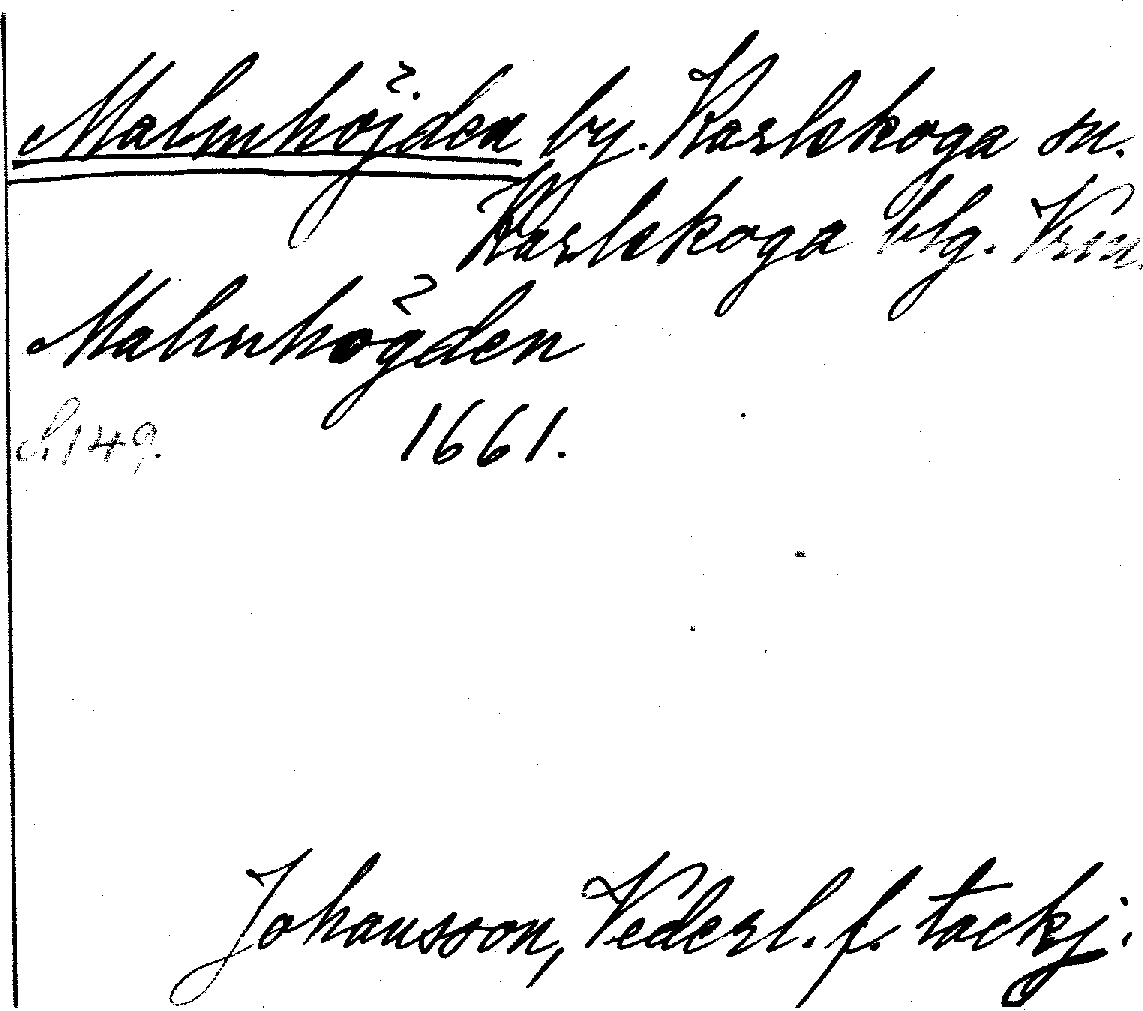 Malmhöjden by. Karlskoga sn.
Karlskoga blg. Vrm.
Malmhögden
s. 149. 1661.
Johansson, Vederl. f. tackj.